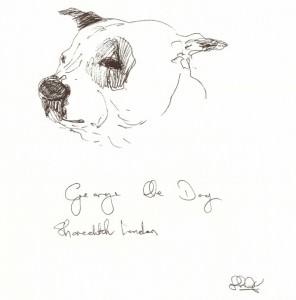 George the Dog
Shoreditch London